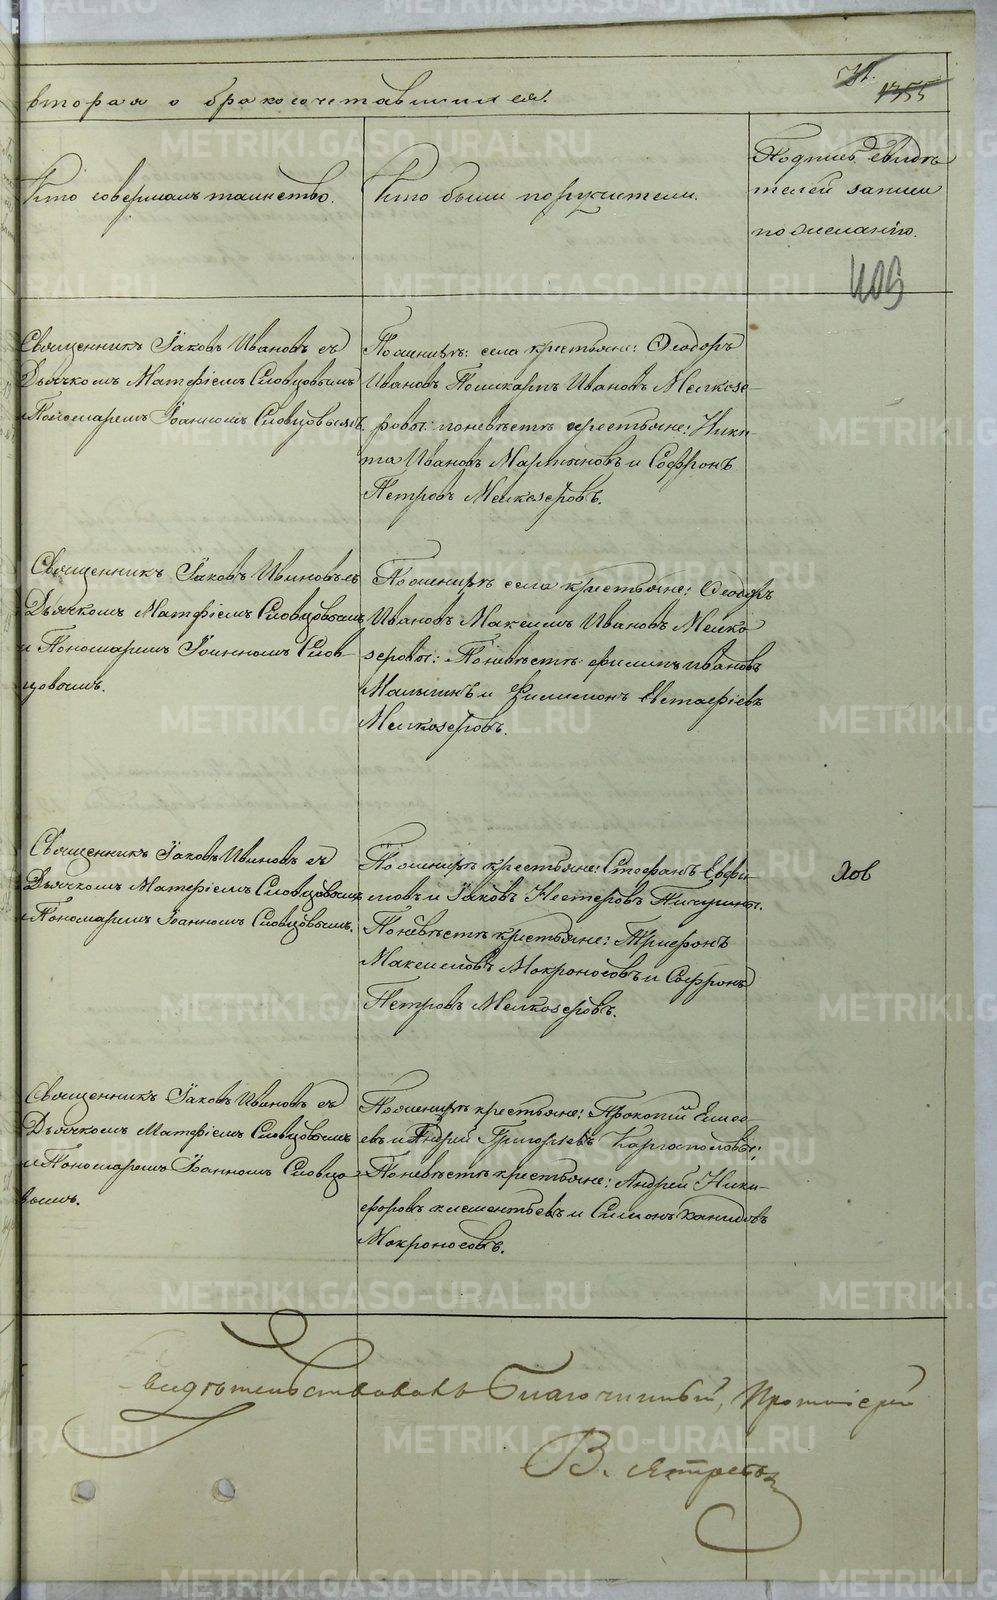 71.
1355
вторая о бракосочетавшихся.
Кто совершалъ таинство.
Кто были поручители.
Подпись свидѣ-
телей записи
по желанію.
409
Священникъ Іаковъ Ивановъ съ
Дьячкомъ Матѳіемъ Словцовымъ
и Пономаремъ Іоанномъ Словцовымъ.
По женихѣ: села крестьяне: Ѳеодоръ
Ивановъ Поликарпъ Ивановъ Мелкозе-
ровы: по невѣстѣ крестьяне: Ники-
та Ивановъ Мартьяновъ и Софронъ
Петровъ Мелкозеровъ.
Священникъ Іаковъ Ивановъ съ
Дьячкомъ Матѳіемъ Словцовымъ
и Пономаремъ Іоанномъ Слов-
цовымъ.
По женихѣ села крестьяне: Ѳеодоръ
Ивановъ Максимъ Ивановъ Мелко-
зеровы: По невѣстѣ: Филипъ Ивановъ
Малыгинъ и Филимонъ Евстафіевъ
Мелкозеровъ.
Священникъ Іаковъ Ивановъ съ
Дьячкомъ Матѳіемъ Словцовымъ
и Пономаремъ Іоанномъ Словцовымъ.
По женихѣ крестьяне: Стефанъ Ефи-
мовъ и Іаковъ Нестеровъ Пичугины.
По невѣстѣ крестьяне: Трифонъ
Максимовъ Мокроносовъ и Софронъ
Петровъ Мелкозеровъ.
Священникъ Іаковъ Ивановъ съ
Дьячкомъ Матѳіемъ Словцовымъ
и Пономаремъ Іоанномъ Словцо-
вымъ.
По женихѣ крестьяне: Прокопій
евъ и Андрей Григорьевъ Каргаполовы;
По невѣстѣ крестьяне: Андрей Ники-
форовъ Клементьевъ и Симонъ
Мокроносовъ.
видѣтельствовалъ Благочинный, Протоіерей
В.
METRIKI.GASO-URAL.RU